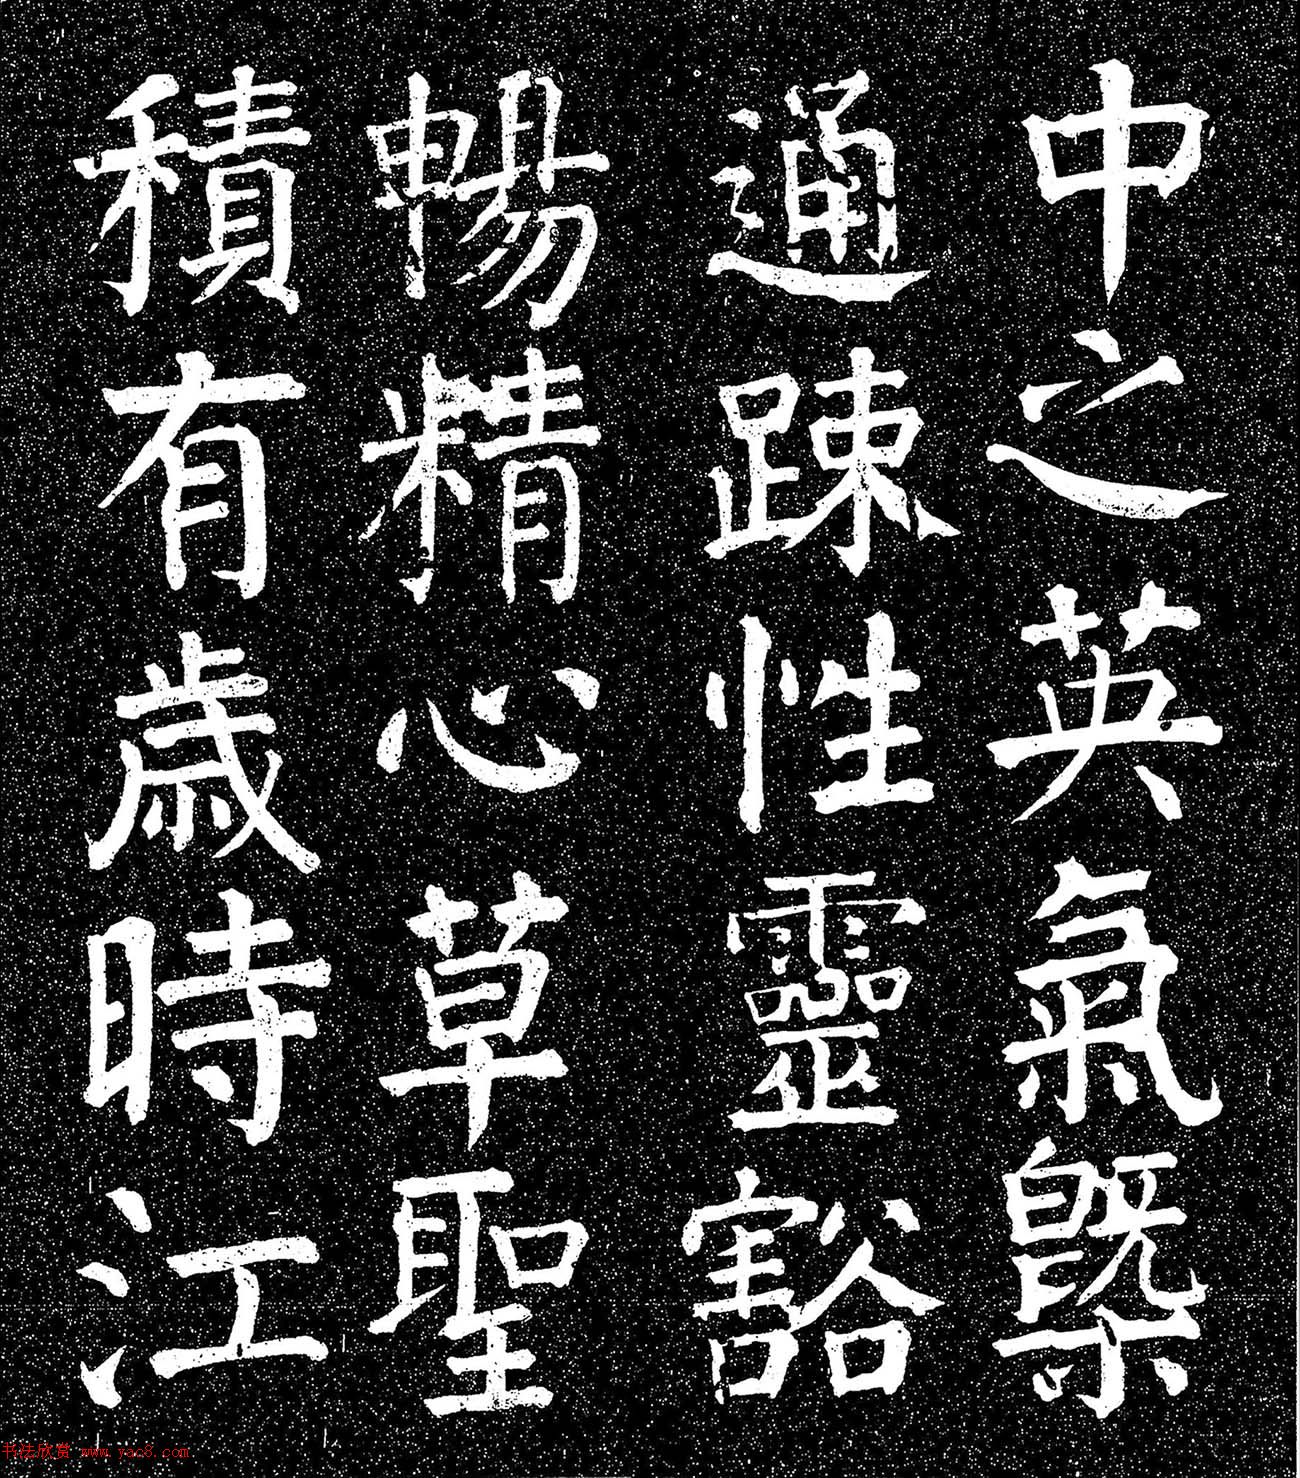 中之英氣槩
通踈性靈豁
暢精心草聖
積有歲時江
书法欣赏 www.yac8.com